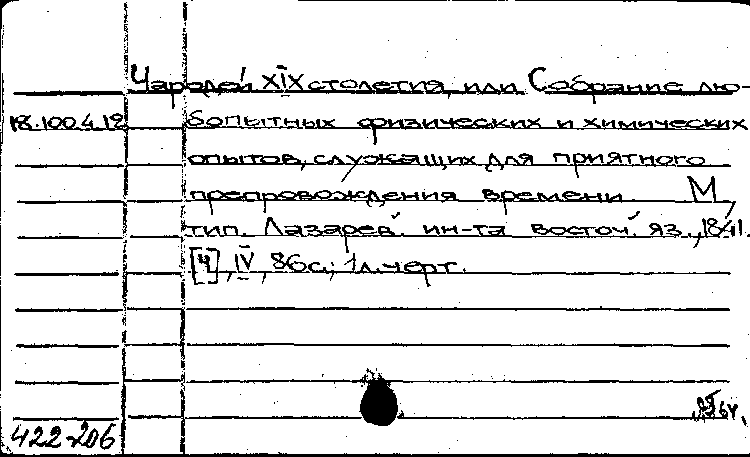 Чародей XIX столетия, или Собрание лю-
18.100.4.12 бопытных физических и химических
опытов, служащих для приятного
препровождения времени. М.,
тип. Лазарев. ин-та восточ. яз., 1841.
[4], IV, 86 с.; 1 л. черт.
422-206